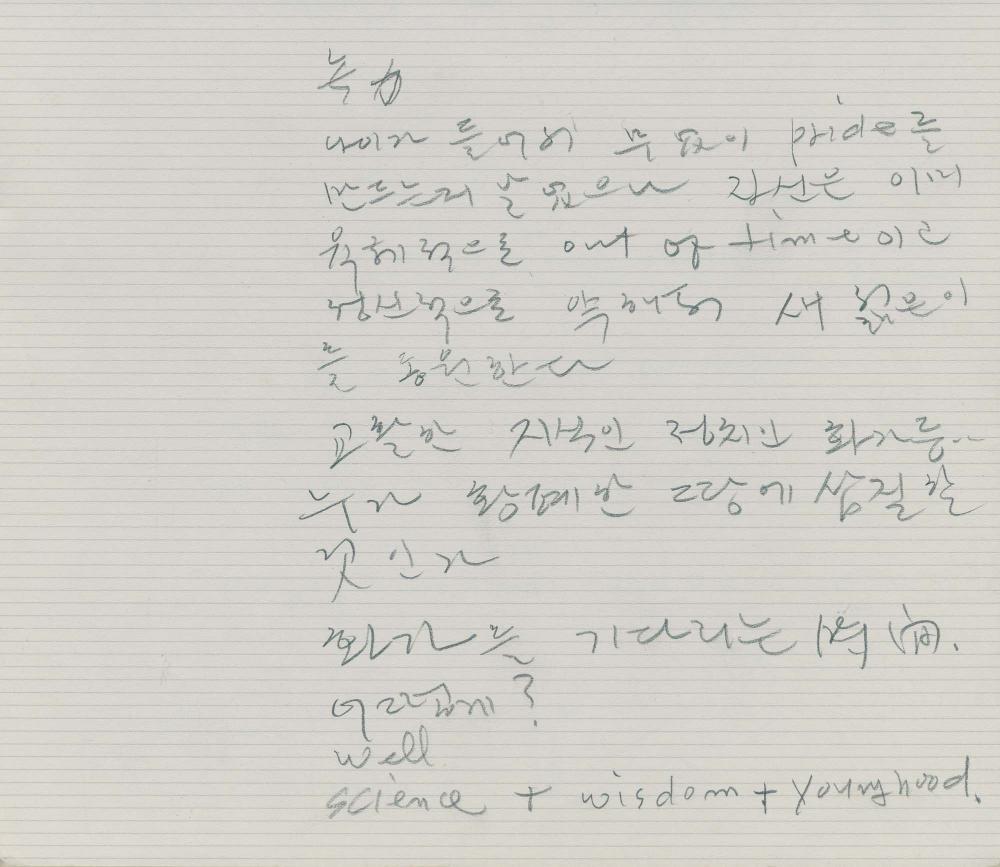 녹力
나이가 들어서 무없이 pride를
만드는데 말 없으나 자신은 이미
육체적으로 out of time이고
정신적으로 약해서 새 젊은이
를 동원한다
교활한 지식인 정치인 화가등..
누가 황폐한 그 땅에 삽질할
것인가
화가를 기다리는 時間.
어떻게?
well
science + wisdom + younghood.